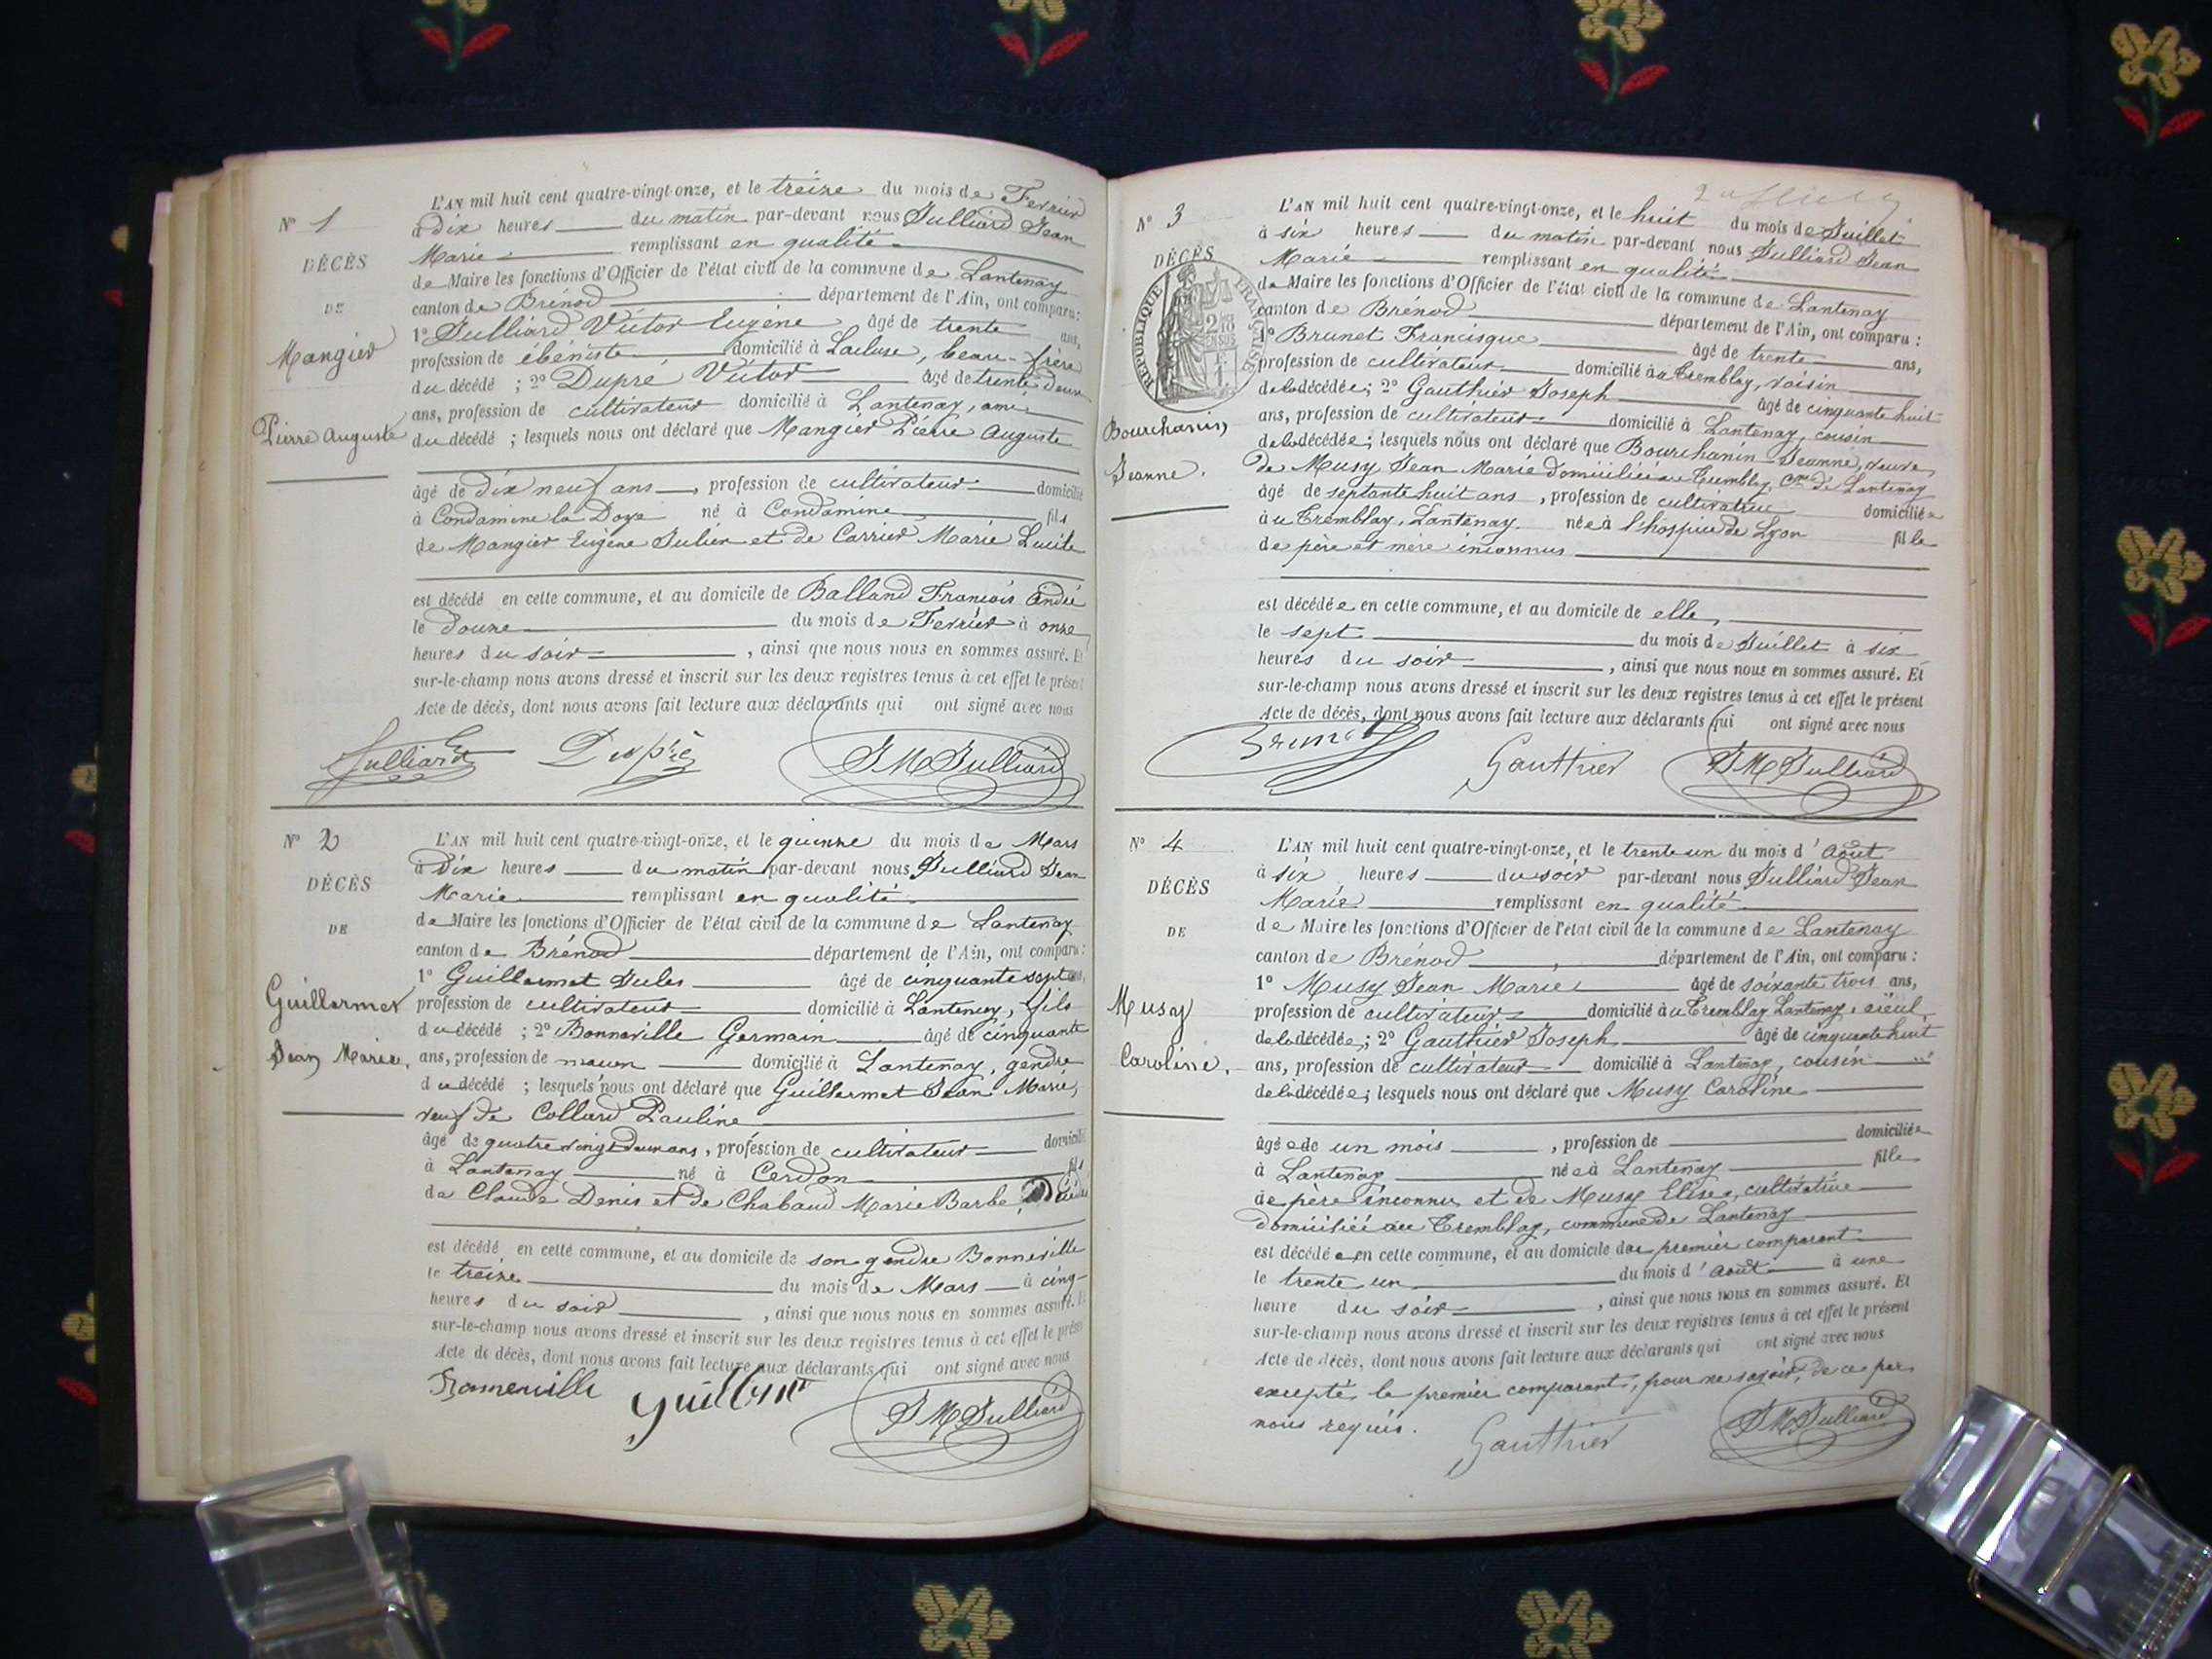 N° 1
DÉCÈS
DE
Mangier
Pierre Auguste
L'AN mil huit cent quatre-vingt-onze, et le treize du mois de Fevrier
à Dix heures du matin par-devant nous Julliard Jean
Marie remplissant en qualité
de Maire les fonctions d'Officier de l'état civil de la commune de Lantenay
canton de Brénod département de l'Ain, ont comparu :
1° Julliard Victor Eugène âgé de trente ans,
profession de ébéniste domicilié à Lacluse, beau-frère
du décédé ; 2° Dupré Victor âgé de trente deux
ans, profession de cultivateur domicilié à Lantenay, ami
du décédé ; lesquels nous ont déclaré que Mangier Pierre Auguste
âgé de dix neuf ans, profession de cultivateur domicilié
à Condamine la Doye né à Condamine fils
de Mangier Eugène Julien et de Carrier Marie Lucile
est décédé en cette commune, et au domicile de Balland François André
le douze du mois de Fevrier à onze
heures du soir, ainsi que nous nous en sommes assuré. Et
sur-le-champ nous avons dressé et inscrit sur les deux registres tenus à cet effet le présent
Acte de décès, dont nous avons fait lecture aux déclarants qui ont signé avec nous
Julliard Dupré JM Julliard
N° 2
DÉCÈS
DE
Guillermet
Jean Marie.
L'AN mil huit cent quatre-vingt-onze, et le quinze du mois de Mars
à Dix heures du matin par-devant nous Julliard Jean
Marie remplissant en qualité
de Maire les fonctions d'Officier de l'état civil de la commune de Lantenay
canton de Brénod département de l'Ain, ont comparu :
1° Guillermet Jules âgé de cinquante sept ans,
profession de cultivateur domicilié à Lantenay, fils
du décédé ; 2° Bonneville Germain âgé de cinquante
ans, profession de maçon domicilié à Lantenay, gendre
du décédé ; lesquels nous ont déclaré que Guillermet Jean Marie,
veuf de Collard Pauline
âgé de quatre vingt deux ans, profession de cultivateur domicilié
à Lantenay né à Cerdon fils
de Claude Denis et de Chabaud Marie Barbe,
est décédé en cette commune, et au domicile de son gendre Bonneville
le treize du mois de Mars à cinq
heures du soir, ainsi que nous nous en sommes assuré. Et
sur-le-champ nous avons dressé et inscrit sur les deux registres tenus à cet effet le présent
Acte de décès, dont nous avons fait lecture aux déclarants qui ont signé avec nous
Bonneville JM Julliard
N° 3
DÉCÈS
RÉPUBLIQUE FRANÇAISE
Bourchanin
Jeanne.
L'AN mil huit cent quatre-vingt-onze, et le huit du mois de Juillet
à six heures du matin par-devant nous Julliard Jean
Marie remplissant en qualité
de Maire les fonctions d'Officier de l'état civil de la commune de Lantenay
canton de Brénod département de l'Ain, ont comparu :
1° Brunet Francisque âgé de trente ans,
profession de cultivateur domicilié au Tremblay, voisin
de la décédée ; 2° Gauthier Joseph âgé de cinquante huit
ans, profession de cultivateur domicilié à Lantenay, cousin
de la décédée ; lesquels nous ont déclaré que Bourchanin Jeanne, veuve
de Musy Jean Marie domiciliée au Tremblay, Cne de Lantenay
âgé de septante huit ans, profession de cultivatrice domiciliée
à u Tremblay, Lantenay née à l'hospice de Lyon fille
de père et mère inconnus
est décédée en cette commune, et au domicile de elle,
le sept du mois de Juillet à six
heures du soir, ainsi que nous nous en sommes assuré. Et
sur-le-champ nous avons dressé et inscrit sur les deux registres tenus à cet effet le présent
Acte de décès, dont nous avons fait lecture aux déclarants qui ont signé avec nous
Brunet Gauthier JM Julliard
N° 4
DÉCÈS
DE
Musy
Caroline.
L'AN mil huit cent quatre-vingt-onze, et le trente un du mois d'Août
à six heures du soir par-devant nous Julliard Jean
Marie remplissant en qualité
de Maire les fonctions d'Officier de l'état civil de la commune de Lantenay
canton de Brénod département de l'Ain, ont comparu :
1° Musy Jean Marie âgé de soixante trois ans,
profession de cultivateur domicilié au Tremblay Lantenay, aïeul
de la décédée ; 2° Gauthier Joseph âgé de cinquante huit
ans, profession de cultivateur domicilié à Lantenay, cousin
de la décédée ; lesquels nous ont déclaré que Musy Caroline
âgée de un mois, profession de domiciliée
à Lantenay née à Lantenay fille
de père inconnu et de Musy Elise, cultivatrice
domiciliée au Tremblay, commune de Lantenay
est décédée en cette commune, et au domicile du premier comparant
le trente un du mois d'août à une
heure du soir, ainsi que nous nous en sommes assuré. Et
sur-le-champ nous avons dressé et inscrit sur les deux registres tenus à cet effet le présent
Acte de décès, dont nous avons fait lecture aux déclarants qui ont signé avec nous
excepté le premier comparant, pour ne savoir, de ce par
nous requis.
Gauthier JM Julliard